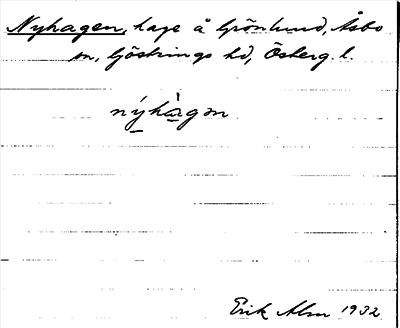 Nyhagen, hage å Grönlund, Åsbo
sn, Göstrings hd, Österg. l.
nýhàgən
Erik Alm 1932